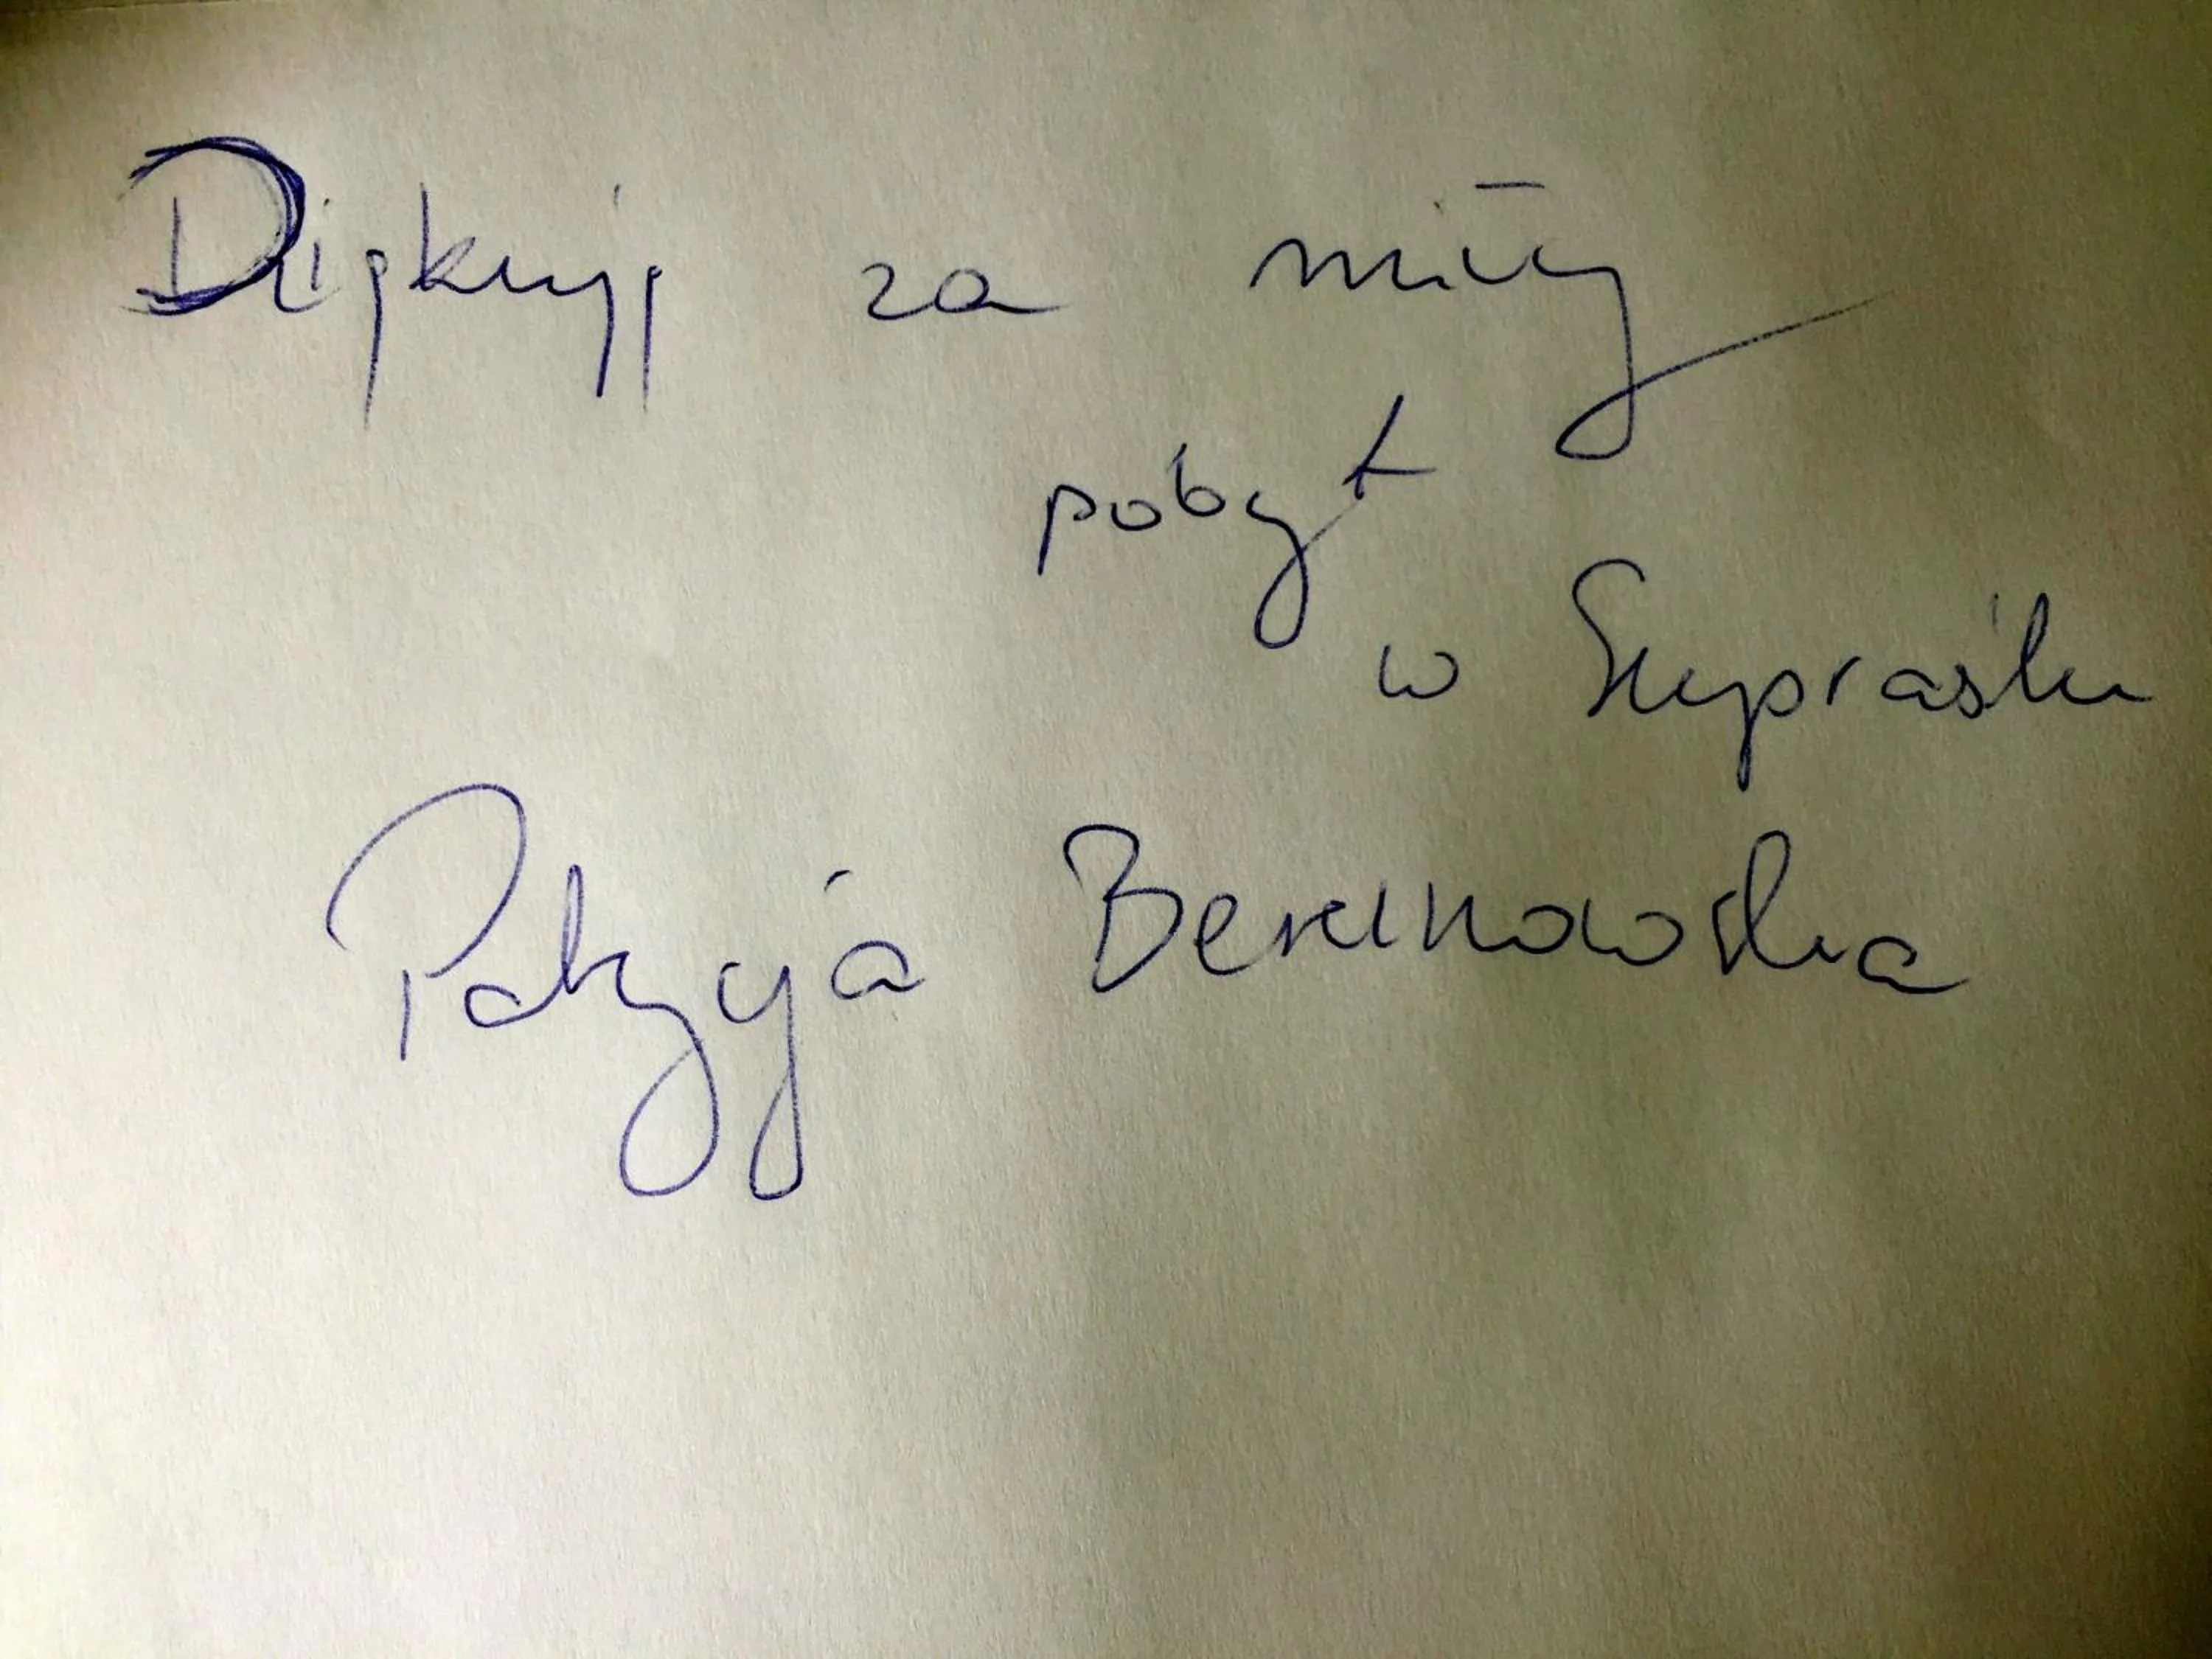 Dziękuję za miły
pobyt
w Supraślu
Patrycja